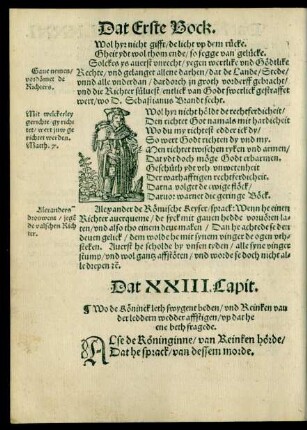 Dat Erste Bock.
Wol hyr nicht gifft / de licht vp dem rücke.
Gheit ydt wol thom ende / so segge van gelücke.
Solckes ys auerst vnrecht / yegen wertlike vnd Göddtlike
Rechte / vnd gelanget allene darhen / dat de Lande / Stede /
vnnd alle vnderdan / dardorch yn groth vorderff gebracht /
vnd die Richter süluest / entlick van Godt swerlick gestraffet
wert / wo D. Sebastianus Brandt secht.
Gaue nemen /
vordömet de
Richters.
Wol hyr nicht höldet rechtferdicheit /
Dem richtet Got namals mit hardicheit
Wo du my richtest edder ick dy /
So wert Godt richten dy vnd my.
Men richtet twischen ryken vnd armen /
Dat ydt doch möge Godt erbarmen.
Geschüth ydt vth vnwetenheit
Der warhafftigen rechtferdicheit /
Darna volget de ewige flöck /
Daruor warnet die geringe Böck.
Mit welckerley
gerichte gy rich
tet / wert juw ge
richtet werden.
Matth. 7.
Alexander de Römische Keyser / sprack: Wenn he einen
Richter auerqueme / de sick mit gauen hedde voruören la-
ten / vnd also tho einem deuw maken / Dan he achtede se den
deuen gelick / dem wolde he mit synem vinger de ogen vth-
steken. Auerst he scholde by vnsen tyden / alle syne vinger
stump / vnd wol gantz affstöten / vnd so worde he doch nicht al-
le drepen etc.
Alexanders
brouwent / jegen
de valschen Rich
ter.
Dat XXIII. Capit.
¶ Wo de Köninck leth swygent beden / vnd Reinken van
der leddern wedder affstigen / vp dat he
ene beth fragede.
ALse de Köninginne / van Reinken hörde /
Dat he sprack / van dessem morde.